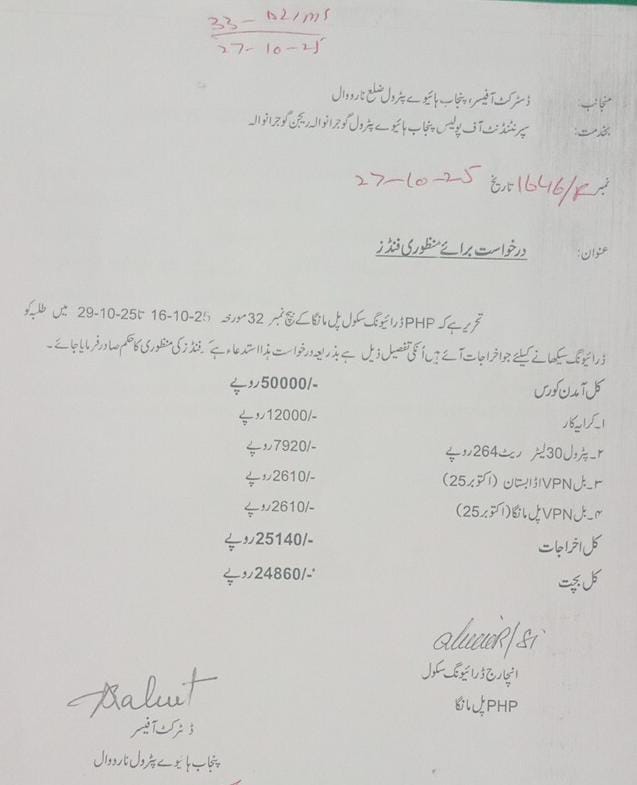 33 –
27-10-25
منجانب: ڈسٹرکٹ آفیسر، پنجاب ہائیوے پٹرول ضلع نارووال
بخدمت: سپرنٹنڈنٹ آف پولیس پنجاب ہائیوے پٹرول گوجرانوالہ ریجن گوجرانوالہ
نمبر 1646/R تاریخ 27-10-25
عنوان: درخواست برائے منظوری فنڈز
تحریر ہے کہ PHP ڈرائیونگ سکول پل مانگا کے بیچ نمبر 32 مورخہ 16-10-25 تا 29-10-25 میں طلبہ کو
ڈرائیونگ سیکھانے کیلئے جو اخراجات آئے ہیں اُنکی تفصیل ذیل ہے بذریعہ درخواست ہذا استدعاء ہے کہ فنڈز کی منظوری کا حکم صادر فرمایا جائے۔
کل آمدن کورس 50000/- روپے
۱۔ کرایہ کار 12000/- روپے
۲۔ پٹرول 30 لیٹر ریٹ 264 روپے 7920/- روپے
۳۔ بل VPN اڈا بستان (اکتوبر 25) 2610/- روپے
۴۔ بل VPN پل مانگا (اکتوبر 25) 2610/- روپے
کل اخراجات 25140/- روپے
کل بچت 24860/- روپے
انچارج ڈرائیونگ سکول
PHP پل مانگا
ڈسٹرکٹ آفیسر
پنجاب ہائیوے پٹرول نارووال